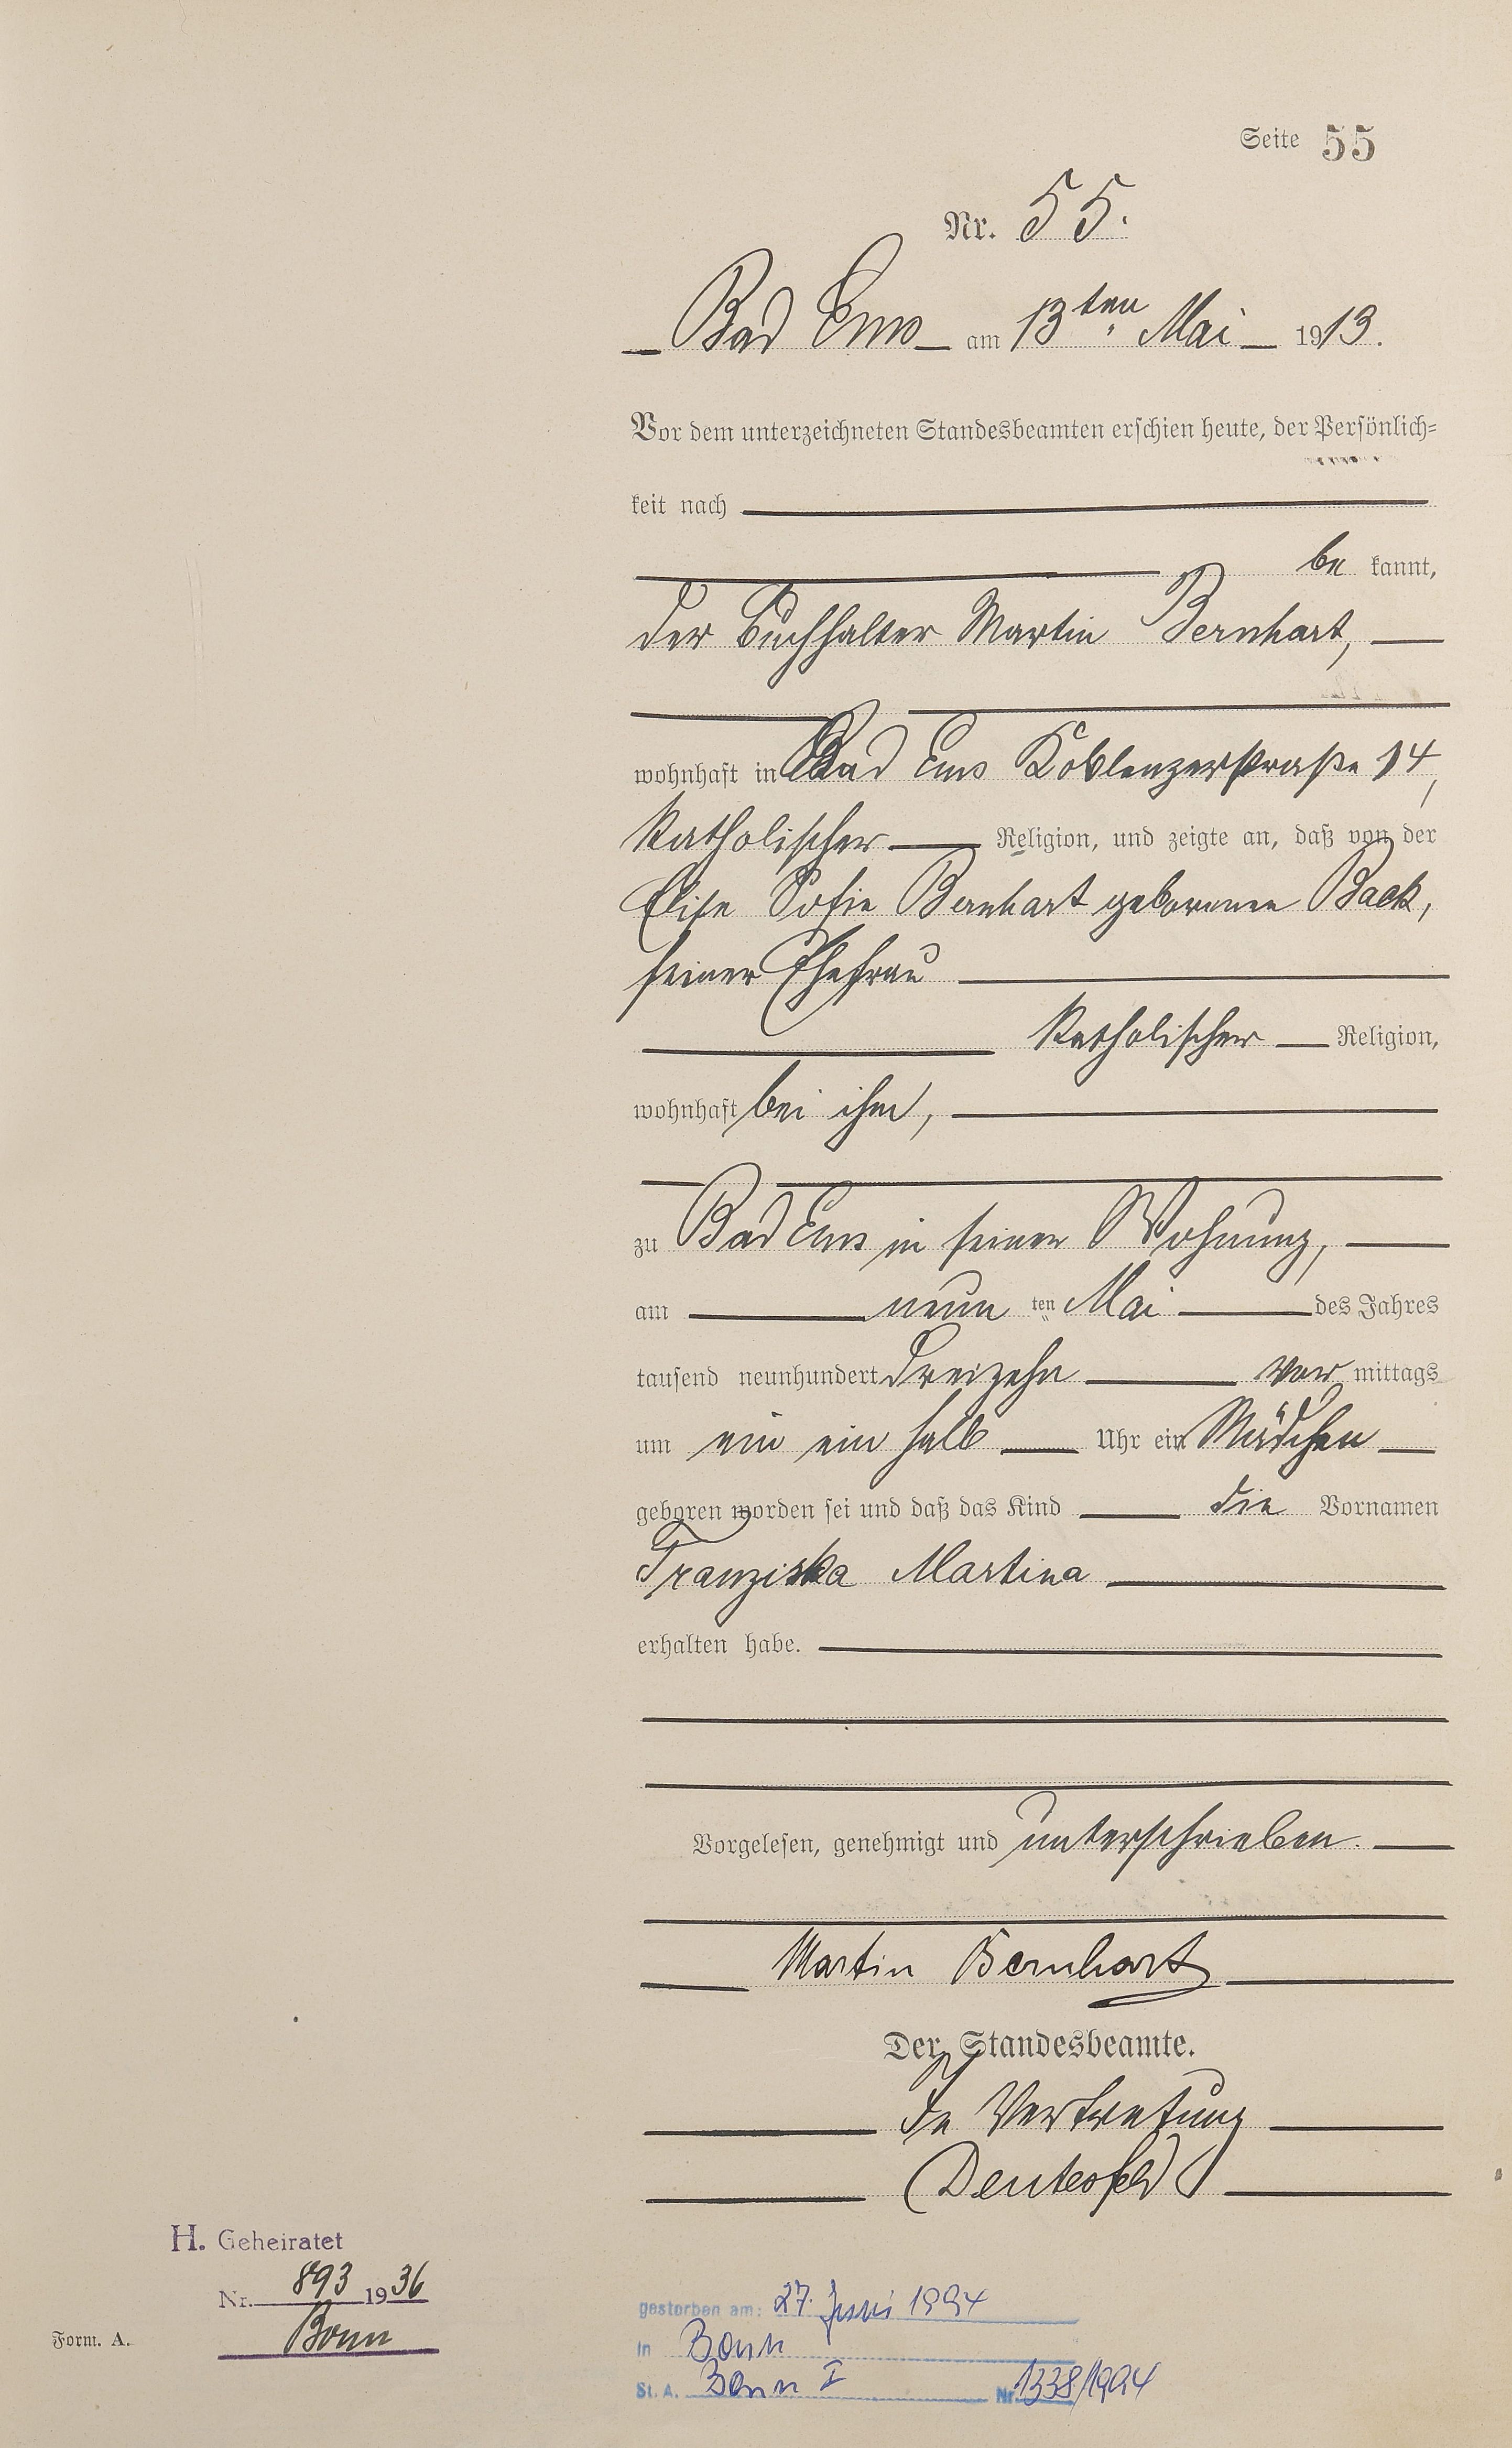 Seite 55
Nr. 55.
Bad Ems am 13ten Mai 1913.
Vor dem unterzeichneten Standesbeamten erschien heute, der Persönlich-
keit nach
be kannt,
der Buchhalter Martin Bernhart,
wohnhaft in Bad Ems Koblenzerstraße 14,
katholischer Religion, und zeigte an, daß von der
Elise Sofie Bernhart geborenen Back,
seiner Ehefrau
katholischer Religion,
wohnhaft bei ihm,
zu Bad Ems in seiner Wohnung,
am neun ten Mai des Jahres
tausend neunhundert dreizehn vor mittags
um ein ein halb Uhr ein Mädchen
geboren worden sei und daß das Kind die Vornamen
Franziska Martina
erhalten habe.
Vorgelesen, genehmigt und unterschrieben.
Martin Bernhart
Der Standesbeamte.
In Vertretung
H. Geheiratet
Nr. 893 1936
Bonn
Form. A.
gestorben am: 27. Juni 1994
in Bonn
St. A. Bonn I Nr. 1338/1994